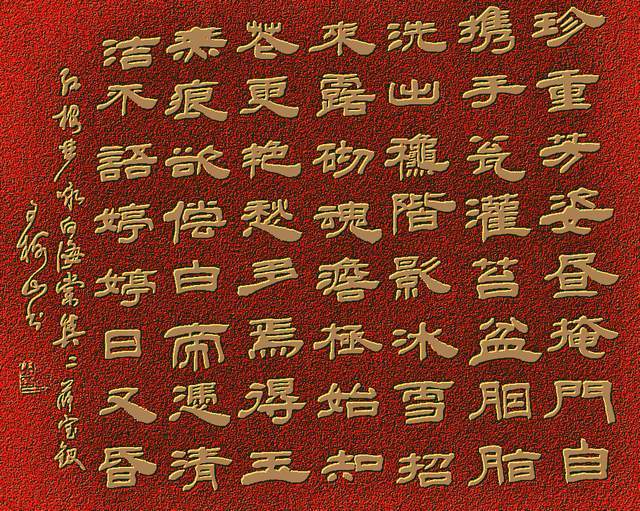 珍重芳姿昼掩門自
携手瓮灌苔盆胭脂
洗出龝階影冰雪招
來露砌魂澹極始知
花更艳愁多焉得玉
無痕欲偿白帝憑清
洁不語婷婷日又昏
红楼梦咏白海棠其二薛宝钗